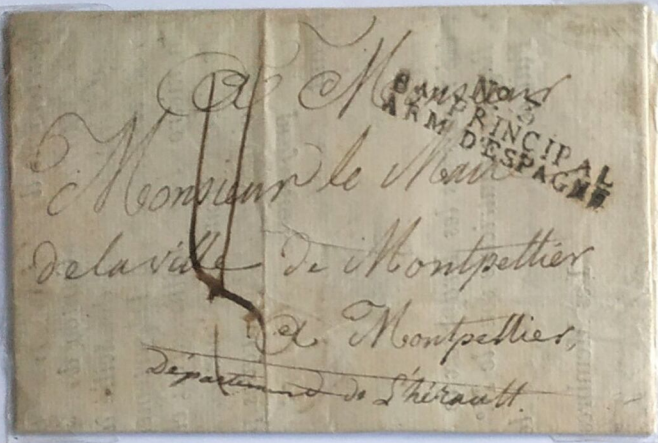 A Monsieur
BAU PRINCIPAL
ARM. D'ESPAGNE
Monsieur le Maire
de la ville de Montpellier
a Montpellier,
Département de L'hérault.